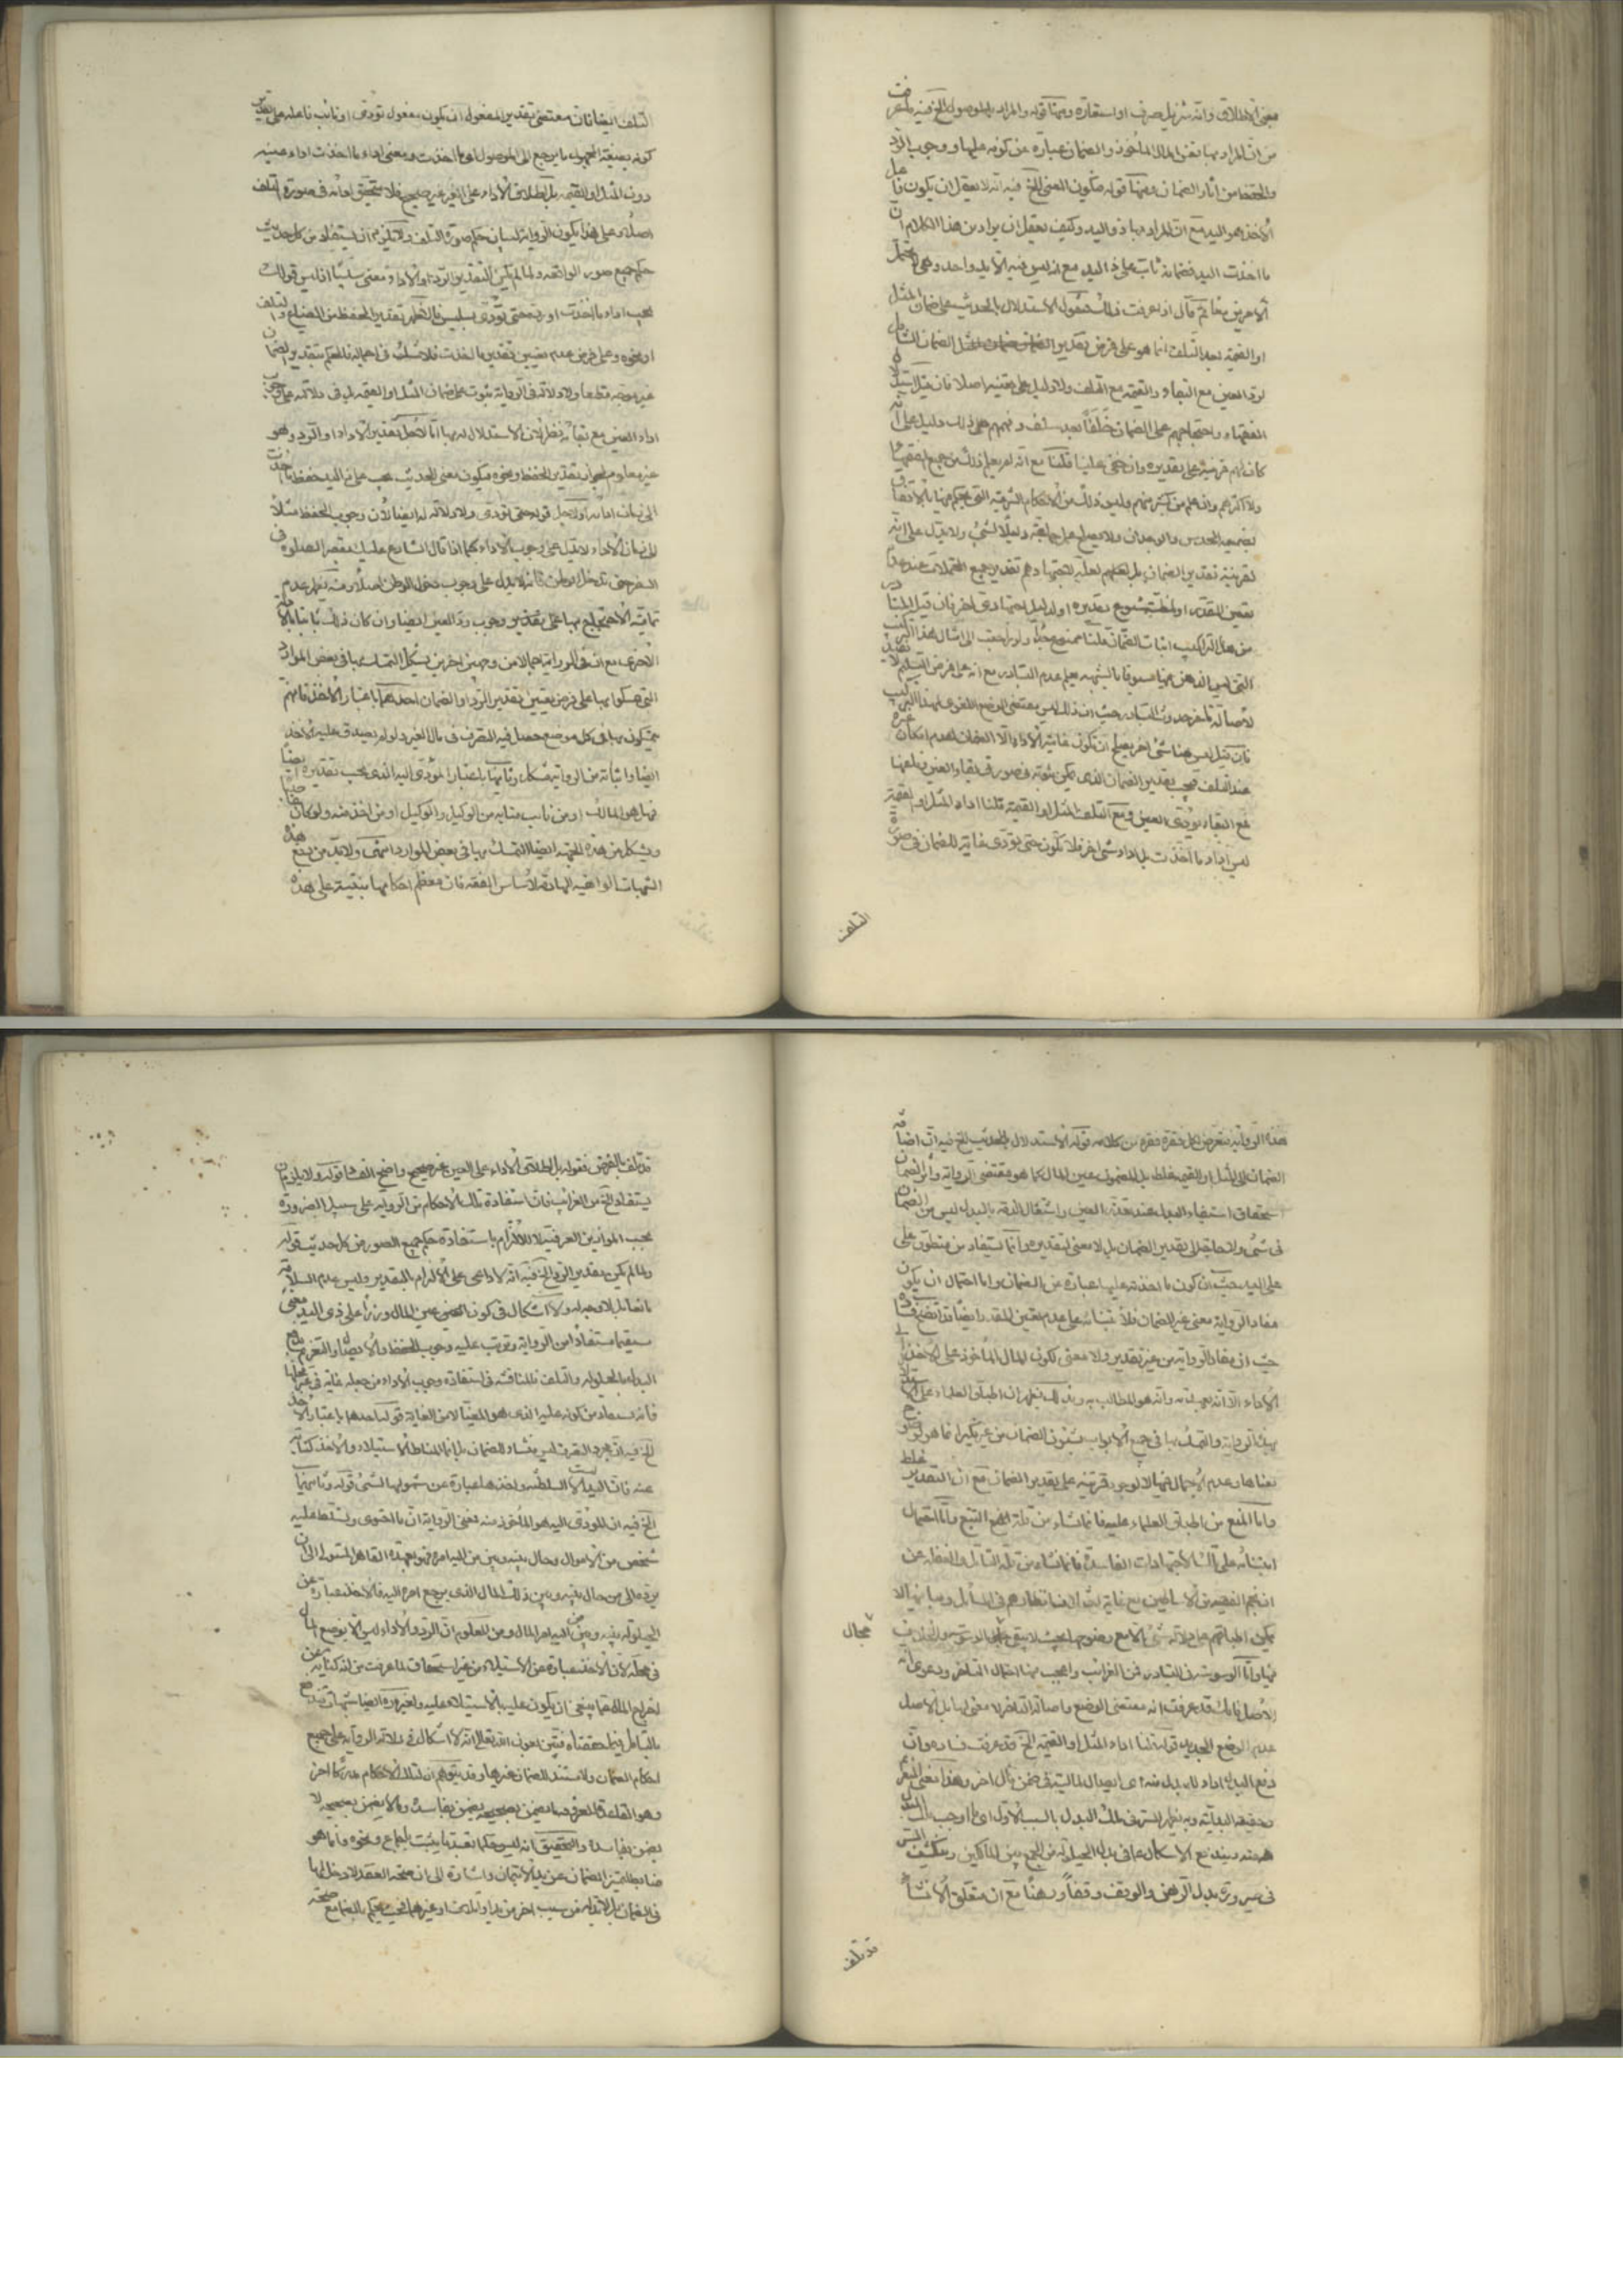 معنى الاطلاق وانه تنزيل صرف او استعارة ومنها قوله والمراد بالموصول الخ فيه ما عرفت
من ان المراد بها نفس المال المأخوذ والضمان عبارة عن كونه عليها ووجوب الرد
والحفظ من آثار الضمان ومنها قوله فيكون المعنى الخ فيه انه لا يعقل ان يكون فاعل
الاخذ هو اليد مع ان المراد بها ذو اليد وكيف يعقل ان يراد من هذا الكلام ان
ما اخذت اليد فضمانه ثابت على ذى اليد مع انه ليس فيه الا يد واحد
ثم قال اذا عرفت ذلك فنقول الاستدلال بالحديث على ضمان المثل
او القيمة بعد التلف انما هو على فرض تقدير الضمان الشامل
لرد العين مع البقاء والقيمة مع التلف ولا دليل على تعيينه اصلا فان قيل
الفقهاء واحتجاجهم على الضمان خلفا بعد سلف وفهمهم ذلك دليل على انه
كان لهم قرينة على تقديره وان خفى علينا قلنا مع انه لم يعلم ذلك من جميع الفقهاء
ولا اكثرهم وان علم من كثير منهم وليس ذلك من الاحكام الشرعية التى يحكم فيها بالاتفاق
بضميمة الحدس والوجدان ولا يصلح عمل جماعة دليلا لشىء ولا يدل على انه
لقرينة تقدير الضمان بل لعلهم لعلة لاجتهادهم تقدير جميع المحتملات عند عدم
تعيين المقدر او لمظنة شيوع تقديره او لدليل اجتهادى آخر فان قيل المتبادر
من هذا التركيب اثبات الضمان قلنا ممنوع جدا ولو راجعت الى امثال هذا التركيب
التى ليس الذهن فيها مسبوقا بالشبهة يعلم عدم التبادر مع انه على فرض التسليم لا يفيد
لاصالة تأخر حدوث التبادر حيث ان ذلك ليس مقتضى الوضع اللغوى لهذا التركيب
فان قيل ليس هنا شىء آخر يصلح ان يكون غايته الاداء الا الضمان لعدم امكان غيره
عند التلف فيجب تقدير الضمان الذى يمكن ثبوته فى صورتى بقاء العين وتلفها
فمع البقاء يؤدى العين ومع التلف المثل او القيمة قلنا اداء المثل او القيمة
ليس اداء ما اخذت بل اداء شىء آخر فلا يكون حتى تؤدى غاية للضمان فى صورة
التلف
التلف ايضا فان مقتضى تقدير المفعول ان يكون مفعول تؤدى او نائب فاعله على تقدير
كونه بصيغة المجهول ما يرجع الى الموصول اى ما اخذت ومعنى اداء ما اخذت اداء عينه
دون المثل او القيمة بل اطلاق الاداء على الغير غير صحيح فلا يتحقق اداؤه فى صورة التلف
اصلا وعلى هذا يكون الرواية لبيان حكم صورة التلف ولا يلزم ان يستفاد من كل حديث
حكم جميع صور الواقعة ولما لم يكن لتقدير الرد او الاداء معنى سلسا اذ ليس قولك
يجب اداء ما اخذت او رده حتى تؤدى بسليس فالاظهر تقدير الحفظ من الضياع والتلف
او نحوه وعلى فرض عدم تعيين تقدير ما اخذت فلا شك فى اجماله فالحكم بتقدير الضمان
غير موجه قطعا ولا دلالة فى الرواية بثبوت على ضمان المثل او القيمة بل فى دلالته على وجوب
اداء العين مع بقائه نظر لان الاستدلال له بها انا لاجل تقدير الاداء او الرد وهو
غير معلوم لجواز تقدير الحفظ ونحوه فيكون معنى الحديث يجب على ذى اليد حفظ ما اخذت
الى زمان ادائه او لاجل قوله حتى تؤدى ولا دلالة له ايضا لان وجوب الحفظ مثلا
الى زمان الاداء لا يدل على وجوب الاداء كما اذا قال الشارع عليك بقصر الصلوة فى
السفر حتى تدخل الوطن فانه لا يدل على وجوب دخول الوطن اصلا ومنه يظهر عدم
تمامية الاحتجاج بها على تقدير وجوب رد العين ايضا وان كان ذلك ثابتا بالادلة
الاخرى مع ان فى الرواية اجمالا من وجهين آخرين يشكل التمسك بها فى بعض الموارد
التى تمسكوا بها على فرض تعيين تقدير الرد او الضمان احدهما باعتبار الاخذ فانهم
يتمسكون بها فى كل موضع حصل فيه التصرف فى مال الغير ولو لم يصدق عليه الاخذ
ايضا واثباته من الرواية مشكل وثانيها باعتبار المؤدى اليه الذى يجب تقديره ايضا
فهل هو المالك او من ناب منابه من الوكيل والوكيل او من اخذ منه ولو كان
ويشكل من هذه الجهة ايضا التمسك بها فى بعض الموارد انتهى ولا بد من دفع هذه
الشبهات الواهية الهادمة لاساس الفقه فان معظم احكامها مبتنية على هذه
هذه الرواية فنتعرض لكل فقرة فقرة من كلامه قوله الاستدلال بالحديث الخ فيه ان اضافة
الضمان الى المثل او القيمة غلط بل المضمون عين المال كما هو مقتضى الرواية واثر الضمان
استحقاق استيفاء البدل عند تعذر العين واشتغال الذمة بالبدل ليس من الضمان
فى شىء ولا حاجة الى تقدير الضمان بل لا معنى لتقديره وانما يستفاد من منطوق على
على اليد حيث ان كون ما اخذته عليها عبارة عن الضمان واما احتمال ان يكون
مفاد الرواية معنى غير الضمان فلابتنائه على عدم تعيين المقدر ايضا قد اتضح فساده
حيث ان مفاد الرواية من غير تقدير ولا معنى لكون المال المأخوذ على الآخذ الى
الاداء الا انه بعهدته وانه هو المطالب به وبذلك يظهر ان اطباق العلماء على الاستدلال
بهذه الرواية والتمسك بها فى جميع الابواب بثبوت الضمان من غير نكير انما هو لوضوح
معناها وعدم الاجمال فيها لا لوجود قرينة على تقدير الضمان مع ان التقدير غلط
واما المنع من اطباق العلماء عليه فانما نشاء من قلة التتبع واما احتمال
ابتنائه على تلك الاجتهادات الفاسدة فانما نشاء من قلة التأمل والغفلة عن
ان فهم الفقهية الاساطين مع غاية اختلاف انظارهم فى المسائل ومبانيها لا
يمكن اطباقهم على دلالة شىء الا مع وضوحها بحيث لا يبقى مجال الوسوسة والخلاف
مجال
فيها واما الوسوسة فى التبادر فمن الغرائب واعجب منها احتمال التأخر ودعوى انه
الاصل فانك قد عرفت انه مقتضى الوضع واصالة التأخر لا معنى لها بل الاصل
عدم الوضع الجديد قوله قلنا اداء المثل او القيمة الخ قد عرفت فساده وان
دفع البدل اداء للمبدل منه اى ايصال لماليته فى ضمن مال آخر وهذا معنى
حقيقة البدلية وبه يظهر السر فى ملك المبدل بالسبب الاول اى ما اوجب
عنه ويندفع الاشكال عما فى بدل الحيلولة من الجمع بين المالكين وينكشف السر
فى صيرورة بدل الرهن والوقف وقفا ورهنا مع ان متعلق الانشاء
قد تلف
قد تلف بالفرض فقوله بل اطلاق الاداء على العين غير صحيح واضح الفساد قوله ولا يلزم ان
يستفاد الخ من الغرائب فان استفادة تلك الاحكام من الرواية على سبيل الضرورة
بحسب الموازين العرفية لا للالتزام باستفادة حكم جميع الصور من كل حديث قوله
ولما لم يكن لتقدير الرد الخ فيه انه لا داعى على الالتزام بالتقدير وليس عدم السلاسة
مانعا بل لا وجه له ولا اشكال فى كون المعنى عين المال وزرا على ذى اليد معنى
مستقيما مستفادا من الرواية وترتب عليه وجوب الحفظ والايصال والتغريم
البدل بالحيلولة والتلف فالمناقشة فى استفادة وجوب الاداء من جعله غاية فى غير محلها
فانه يستفاد من كونه عليه الذى هو المغيا لا من الغاية قوله احدهما باعتبار الاخذ
الخ فيه ان مجرد التصرف ليس منشاء للضمان بل انما المناط الاستيلاء والاخذ كناية
عنه فان اليد ليست الا السلطنة واخذها عبارة عن شمولها لشىء قوله وثانيهما
الخ فيه ان المؤدى اليه هو المأخوذ منه فمعنى الرواية ان ما احتوى وتسلط عليه
شخص من الاموال وحال بينه وبين من اليه امره فهو بعهدة القاهر المستولى الى ان
يرده الى من حال بينه وبين ذلك المال الذى يرجع امره اليه فالاخذ عبارة عن
الحيلولة بينه وبين من اليه امر المال ومن المعلوم ان الرد والاداء ليس الا وضع المال
فى محله لان الاخذ عبارة عن الاستيلاء من غير استحقاق لما عرفت من انه كناية عن
اخراج المال عما ينبغى ان يكون عليه بالاستيلاء عليه ولغيره ايضا شبهات تندفع
بالتأمل فيما حققناه فتبين بعون الله تعالى انه لا اشكال فى دلالة الرواية على جميع
احكام الضمان ولا مستند للضمان غيرها وقد يتوهم ان لتلك الاحكام مدركا آخر
وهو القاعدة المعروفة ما يضمن بصحيحه يضمن بفاسده وما لا يضمن بصحيحه لا
يضمن بفاسده والتحقيق انه ليس حكما تعبديا يثبت باجماع ونحوه وانما هو
ضابط لتمييز الضمان عن يد الايتمان واشارة الى ان صحة العقد لا دخل لها
فى الضمان بل لا بد له من سبب آخر من يد او اتلاف او غيرهما بحيث يحكم بالضمان مع صحته